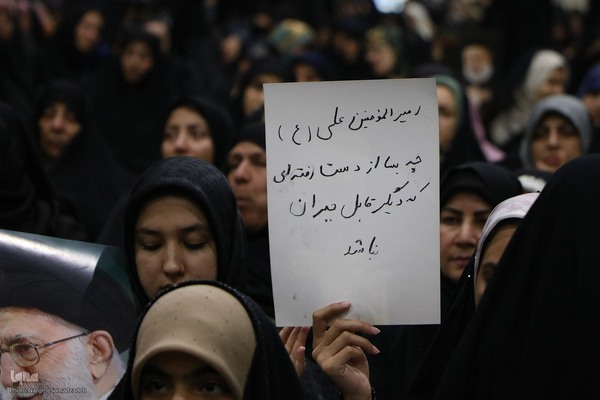 امیرالمؤمنین علی (ع)
چه بسا از دست رفته‌ای
که دیگر قابل جبران
نباشد